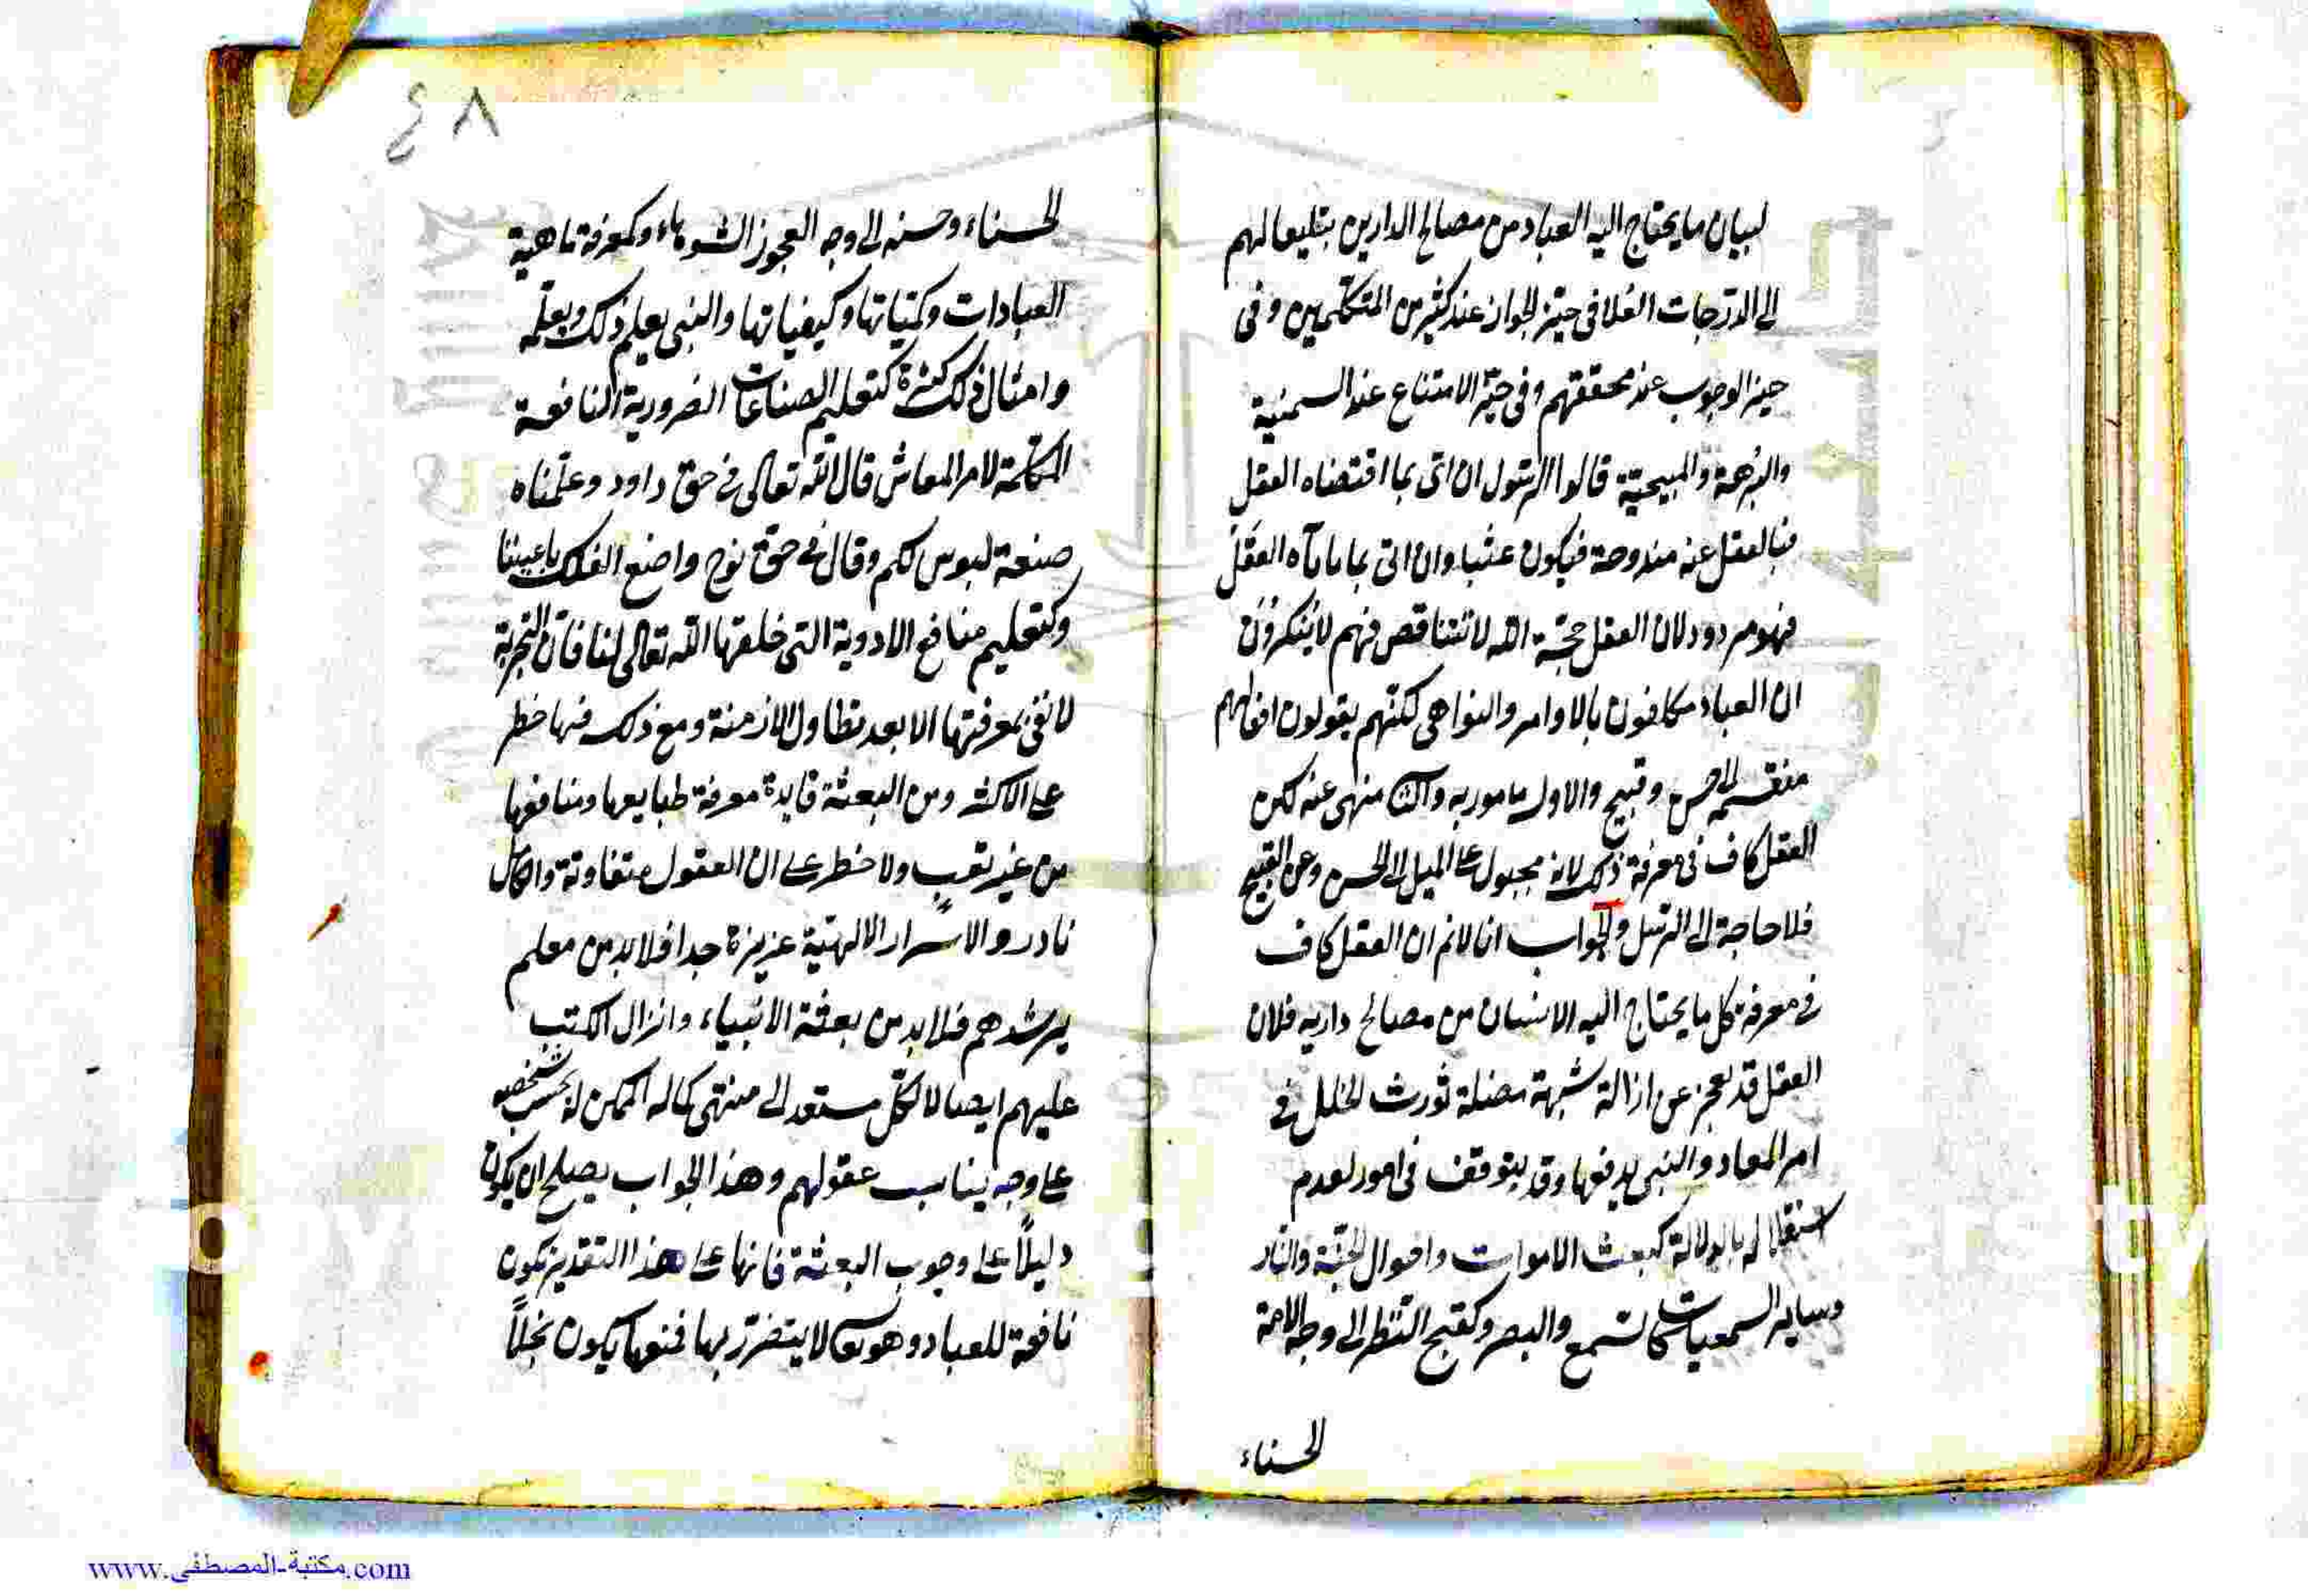 لبيان ما يحتاج اليه العباد من مصالح الدارين بتليعا لهم
الى الدرجات العلا في حيز الجواز عند كثير من المتكلمين وفى
حيز الوجوب عند محققهم وفى حيز الامتناع عند السمنية
والبرهمة قالوا الرسول ان اتى بما اقتضاه العقل
فبالعقل عنه مندوحة فيكون عبثا وان اتى بما ياباه العقل
فهو مردود لان العقل حجة الله لا تتناقض فهم لا ينكرون
ان العباد مكلفون بالاوامر والنواهى لكنهم يقولون افعالهم
منقسم الى حسن وقبيح والاول مامور به والثانى منهى عنه لكن
العقل كاف فى معرفة ذلك لانه مجبول على الميل الى الحسن وعن القبيح
فلا حاجة الى الرسل والجواب انا لانم ان العقل كاف
فى معرفة كل ما يحتاج اليه الانسان من مصالح داريه فلان
العقل قد يعجز عن ازالة شبهة مضلة تورث الخلل فى
امر المعاد والنبى يدفعها وقد يتوقف فى امور لعدم
استقلاله بالدلالة كبعث الاموات واحوال الجنة والنار
وساير السمعيات كالسمع والبصر وكقبح النظر الى وجه الامة
الحسناء
٤٨
الحسناء وحسنه الى وجه العجوز الشوهاء وكمعرفة ماهية
العبادات وكمياتها وكيفياتها والنبى يعلم ذلك ويعلمه
وامثال ذلك كثيرة كتعليم الصناعات الضرورية النافعة
المكملة لامر المعاش قال الله تعالى فى حق داود وعلمناه
صنعة لبوس لكم وقال فى حق نوح واصنع الفلك باعيننا
وكتعليم منافع الادوية التى خلقها الله تعالى لنا فان التجربة
لا تفى بمعرفتها الا بعد تطاول الازمنة ومع ذلك فيها خطر
على الاكثر ومن البعثة فايدة معرفة طبايعها ومنافعها
من غير تعب ولا خطر على ان العقول متفاوتة والكامل
نادر والاسرار الالهية عزيزة جدا فلا بد من معلم
يرشدهم فلا بد من بعثة الانبياء وانزال الكتب
عليهم ايصالا لكل مستعد الى منتهى كماله الممكن له بحسب شخصه
على وجه يناسب عقولهم وهذا الجواب يصلح ان يكون
دليلا على وجوب البعثة فانها على هذا التقدير تكون
نافعة للعباد وهو تعالى لا يتضرر بها فمنعها يكون بخلا
www.مكتبة-المصطفى.com